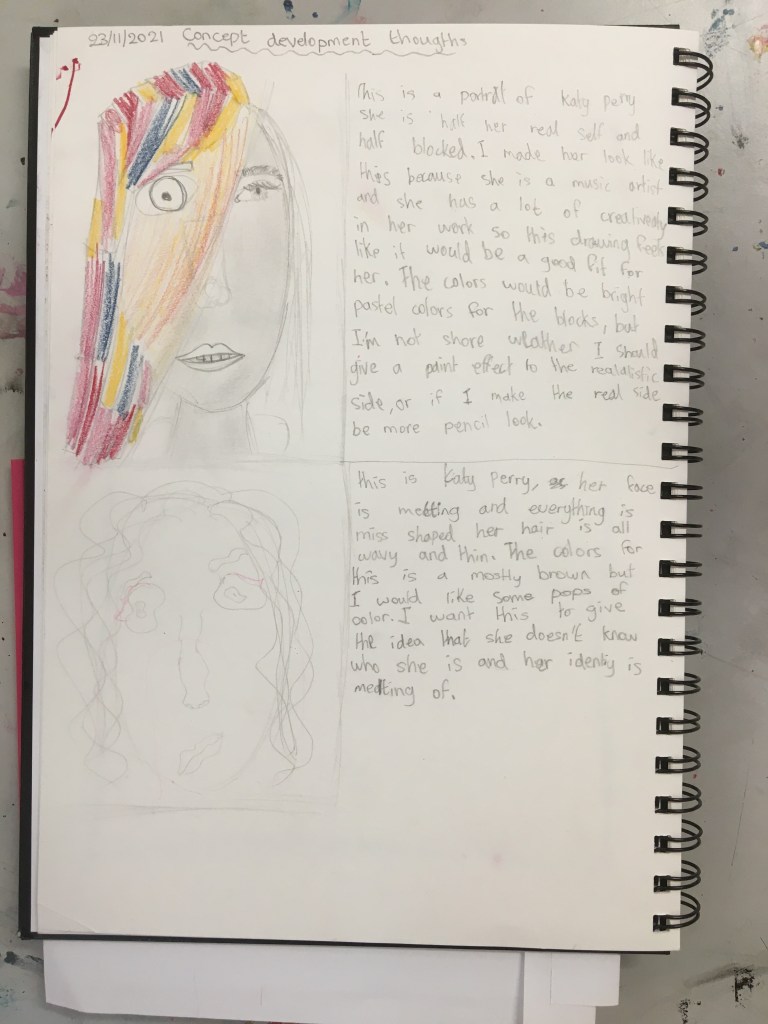 23/11/2021 Concept development thougths
This is a portrait of Katy perry
she is half her real self and
half blocked. I made her look like
this because she is a music artist
and she has a lot of creativety
in her work so this drawing feels
like it would be a good fit for
her. The colors would be bright
pastel colors for the blocks, but
I'm not shore weather I should
give a paint effect to the realalistic
side, or if I make the real side
be more pencil look.
this is Katy perry, her face
is meltting and everything is
miss shaped her hair is all
wavy and thin. The colors for
this is a mostly brown but
I would like some pops of
color. I want this to give
the idea that she doesn't know
who she is and her identiy is
meltting of.